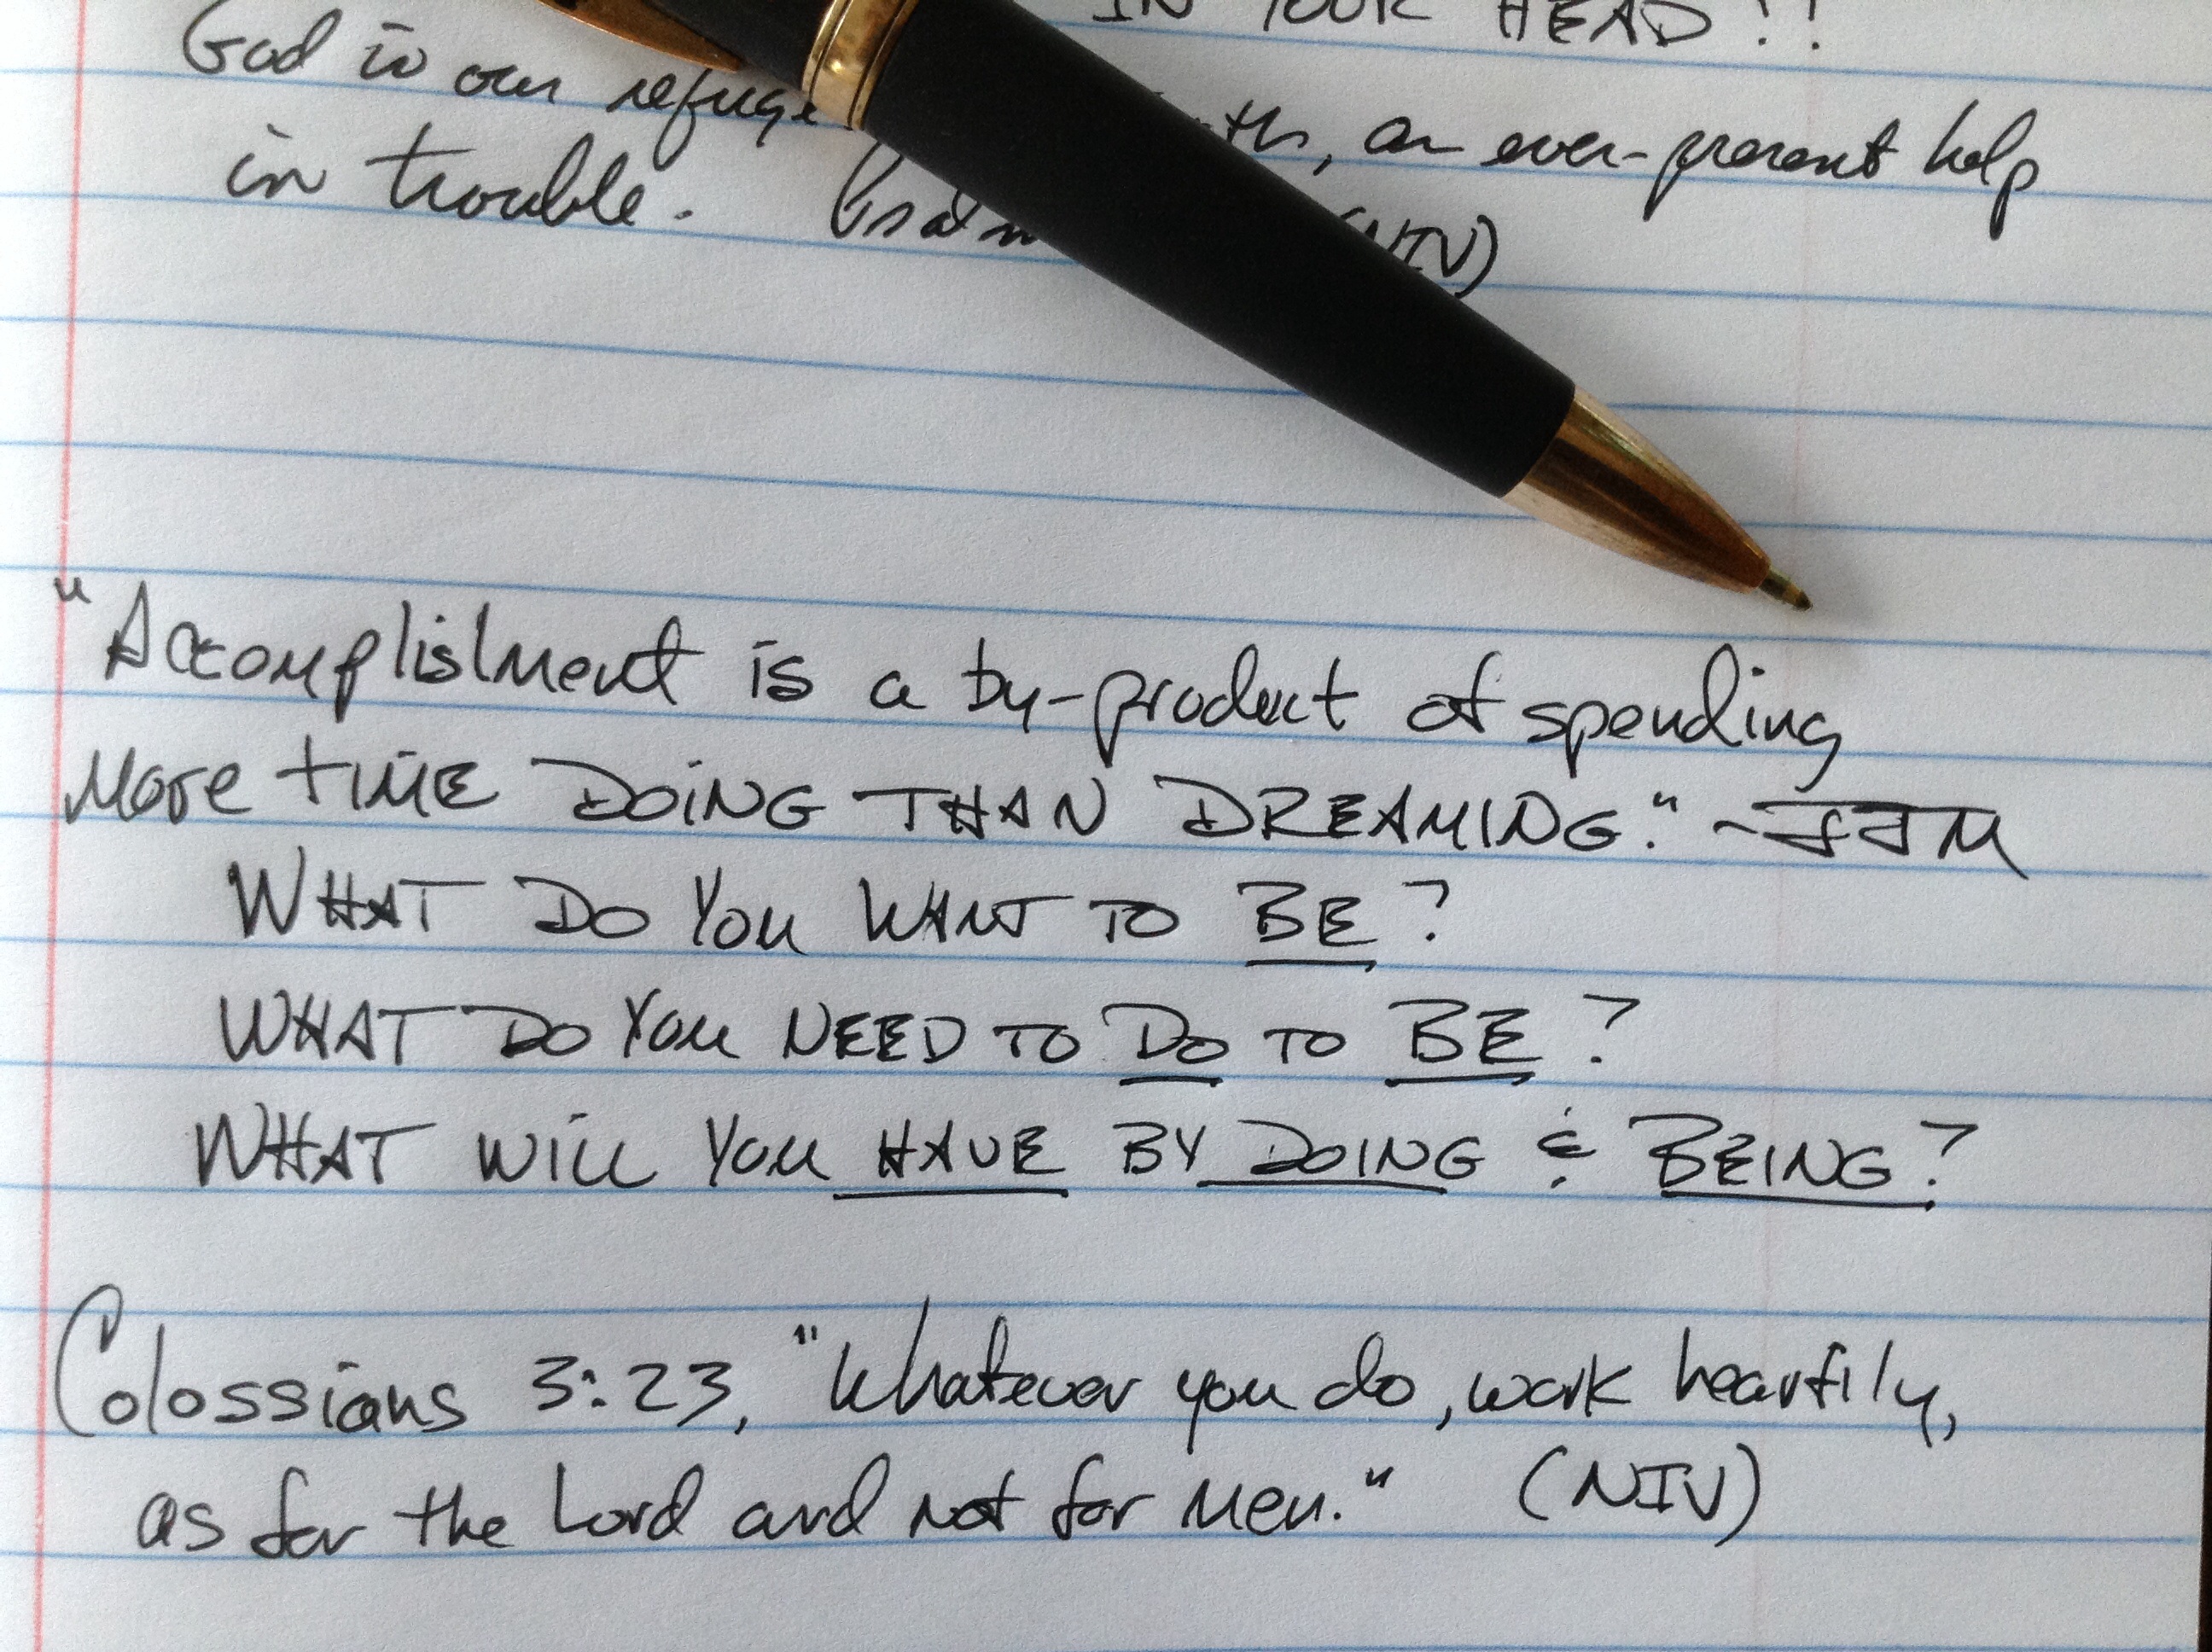 IN YOUR HEAD!!
God is our refuge th, an ever-present help
in trouble. Psalm (NIV)
"Accomplishment is a by-product of spending
More time DOING THAN DREAMING." - JJM
WHAT DO YOU WANT TO BE?
WHAT DO YOU NEED TO DO TO BE?
WHAT WILL YOU HAVE BY DOING & BEING?
Colossians 3:23, "Whatever you do, work heartily,
as for the Lord and not for Men." (NIV)